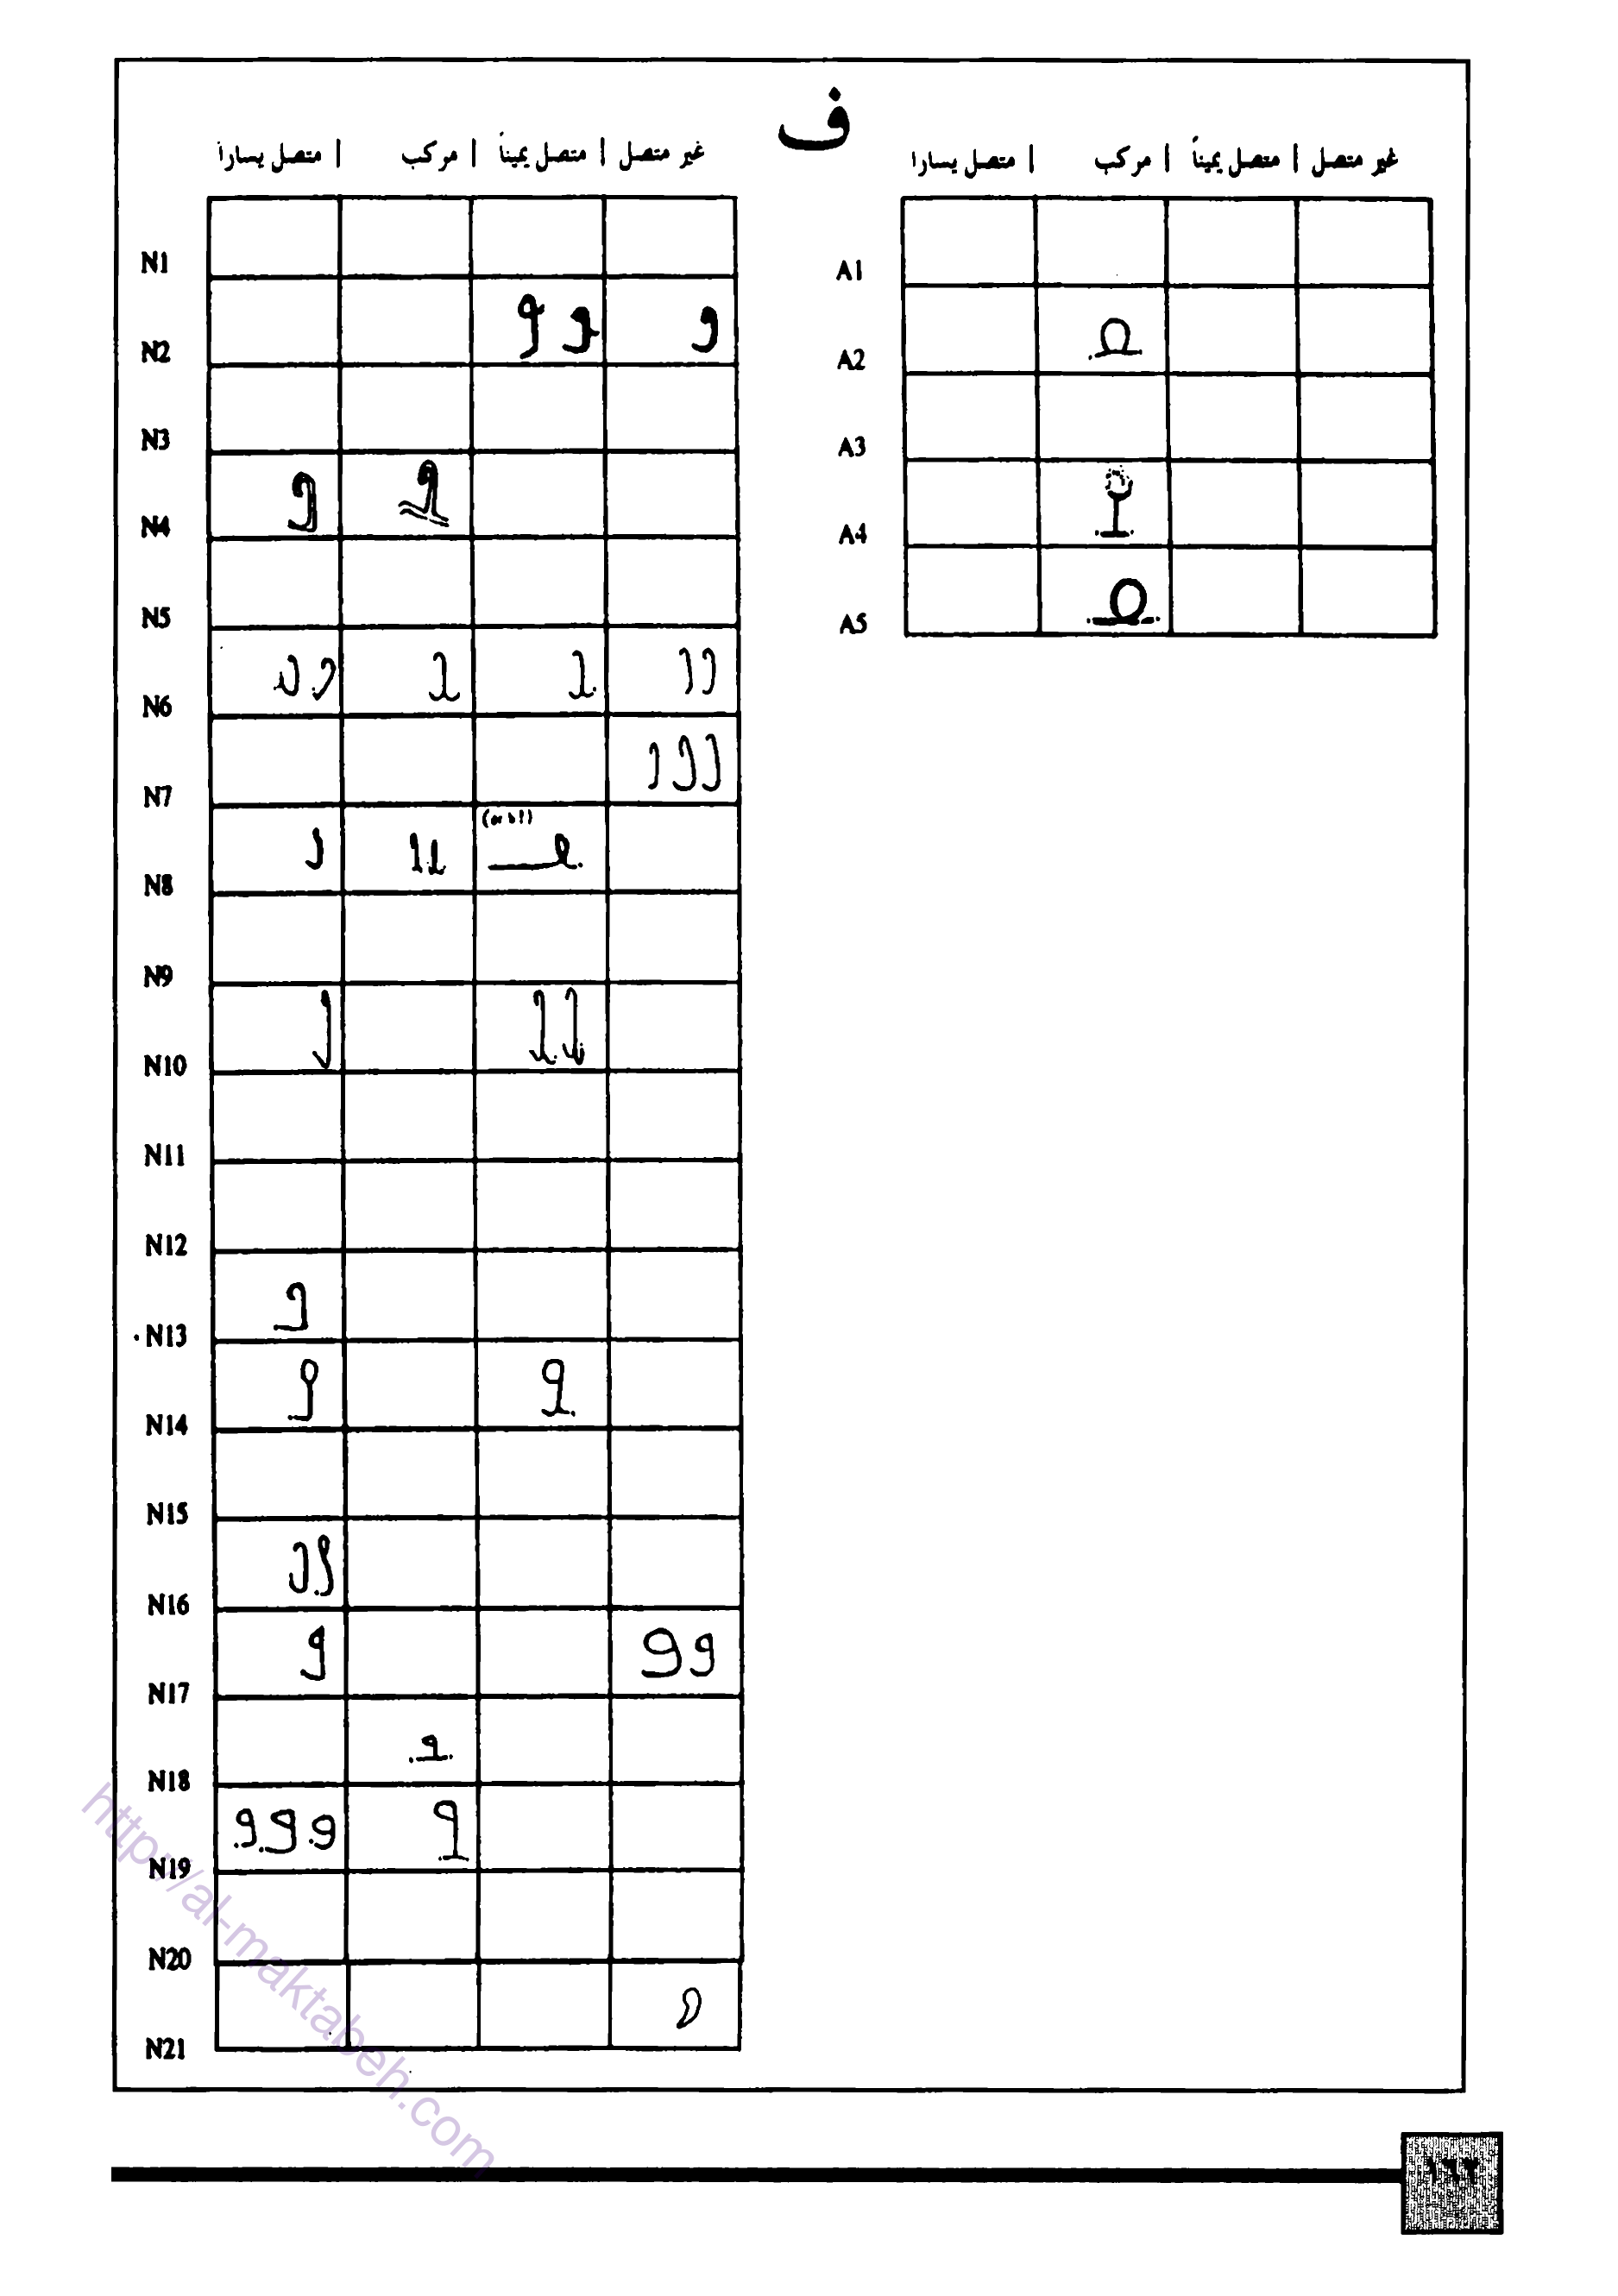 ف
غير متصل | متصل يميناً | مركب | متصل يسارا
غير متصل | متصل يميناً | مركب | متصل يسارا
A1
A2
A3
A4
A5
N1
N2
N3
N4
N5
N6
N7
(or b!)
N8
N9
N10
N11
N12
N13
N14
N15
N16
N17
N18
N19
N20
N21
http://al-maktabeh.com